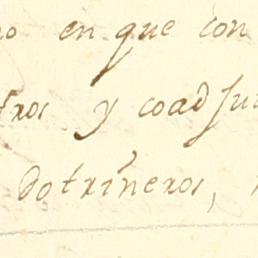 no en que con
tros y coadju
Dotrineros,